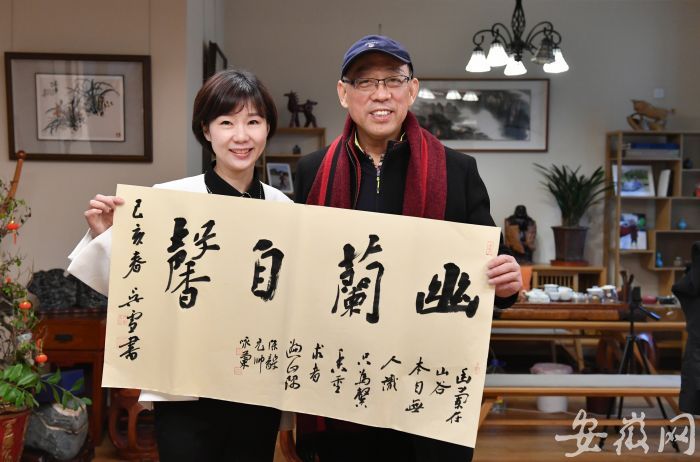 幽蘭自馨
幽蘭在
山谷
本自無
人識
只為馨
香重
求者
遍山隅
陳毅
元帥
詠蘭
己亥春 吳雪書
安徽网